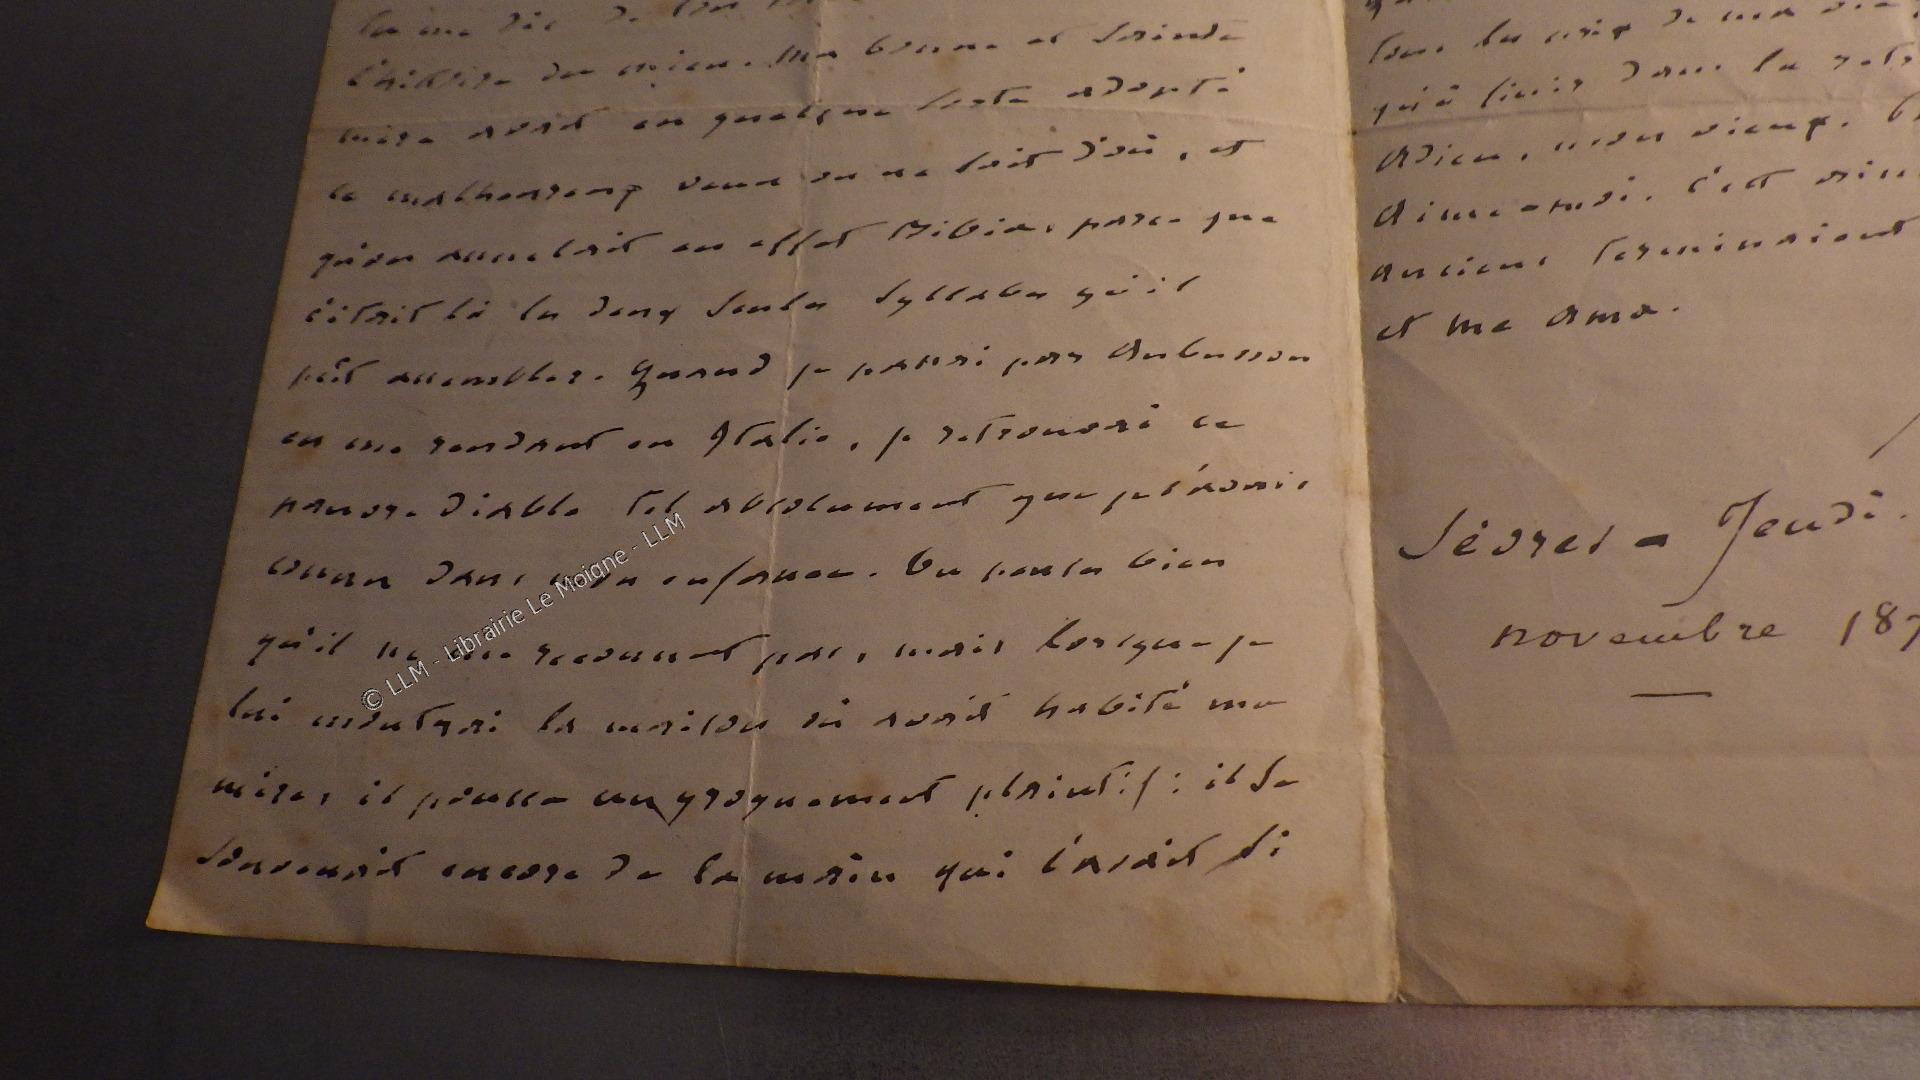 l'histoire du mien. Ma bonne et sainte
mère avait en quelque sorte adopté
ce malheureux venu on ne sait d'où, et
qu'on appelait en effet Bibia, parce que
c'était là les deux seules syllabes qu'il
pût assembler. Quand je passai par Aubusson
en me rendant en Italie, je retrouvai ce
pauvre diable tel absolument que je l'avais
connu dans mon enfance. Tu penses bien
qu'il ne me reconnut pas, mais lorsque je
lui montrai la maison où avait habité ma
mère, il poussa un grognement plaintif : il se
souvenait encore de la main qui l'avait si
tous les
qu'à finir dans la
Adieu, mon vieux.
Aime-moi. C'est
anciens terminaient
et me ama.
Sèvres - Jeudi.
novembre 187
© LLM - Librairie Le Moigne - LLM